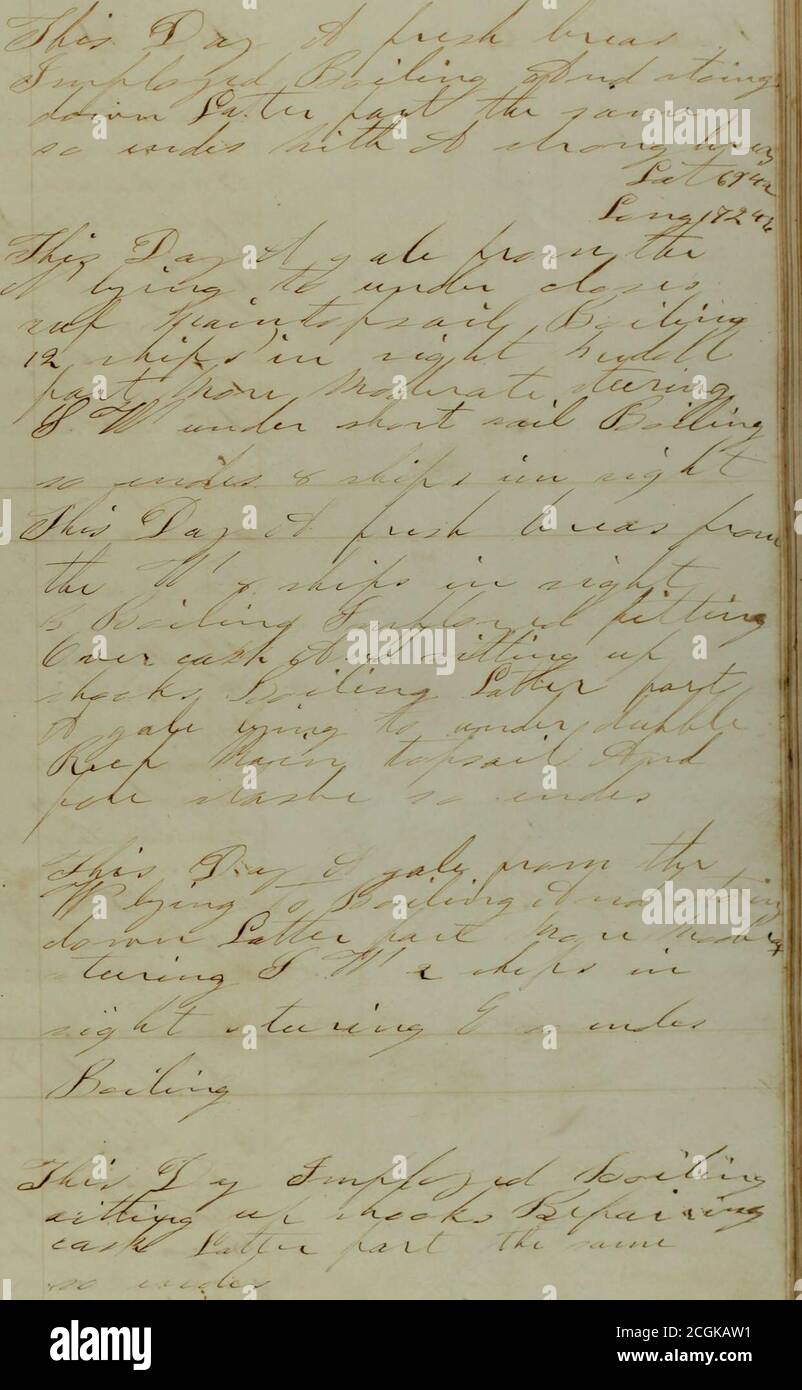 This Day A fresh breas
Imployed Boiling And stoing
down Latter part the same
so endes with A strong breas
Lat 69 42
Long 172 46
This Day A gale from the
N lying to under closes
reef Maintopsail Boiling
12 ships in sight Middle
part More Moderate steering
S. W under short sail Boiling
so endes 8 ships in sight
This Day A fresh breas from
the N 8 ships in sight
Boiling Imployed fitting
Over cask And sitting up
shooks Boiling Latter part
A gale lying to under dubble
Reef Main topsail And
fore so endes
This Day A gale from the
N lying to Boiling And
down Latter part More
steering S. W 2 ships in
sight steering E so endes
Boiling
This Day Imployed Boiling
sitting up shooks Repairing
cask Latter part the same
so endes
alamy
Image ID: 2CGKAW1
www.alamy.com